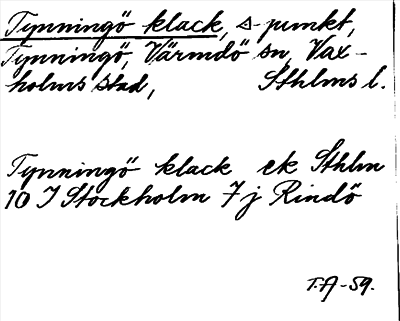 Tynningö klack, ▵-punkt,
Tynningö, Värmdö sn, Vax-
holms stad, Sthlms l.
Tynningö klack ek Sthlm
10 I Stockholm 7j Rindö
T.A-59.